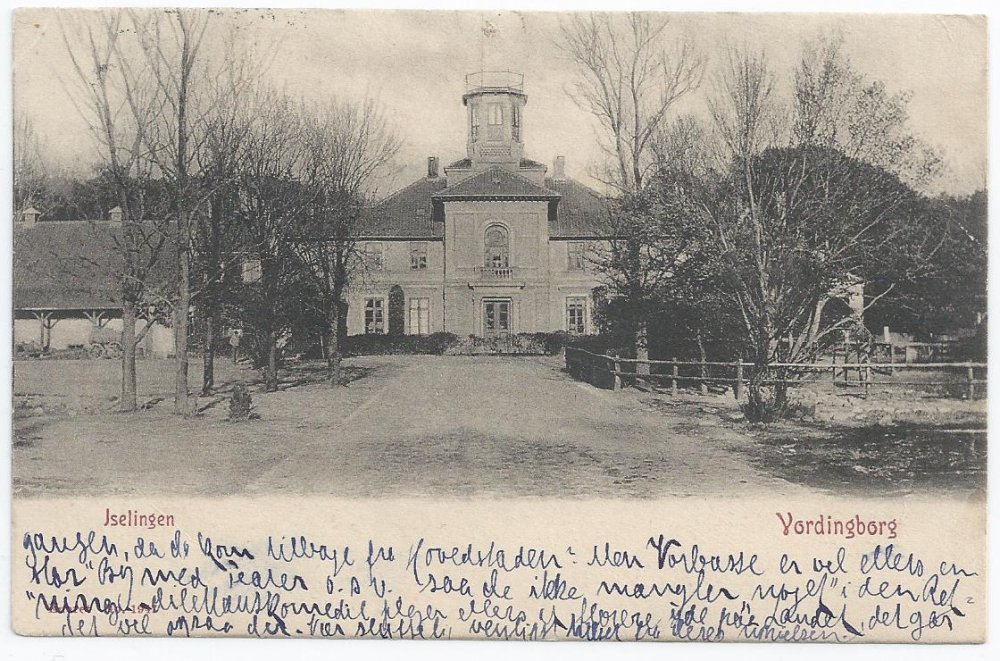 Iselingen
Vordingborg
gangen, da de kom tilbage fra Hovedstaden? Men Vorbasse er vel ellers en
stor "By med Teater o.s.v. (saa de ikke mangler noget" i den Ret-
"ning, dilettantkomedie plejer ellers at florere ude paa Landet, det gør
det vel ogsaa der. venligst hilset fra deres